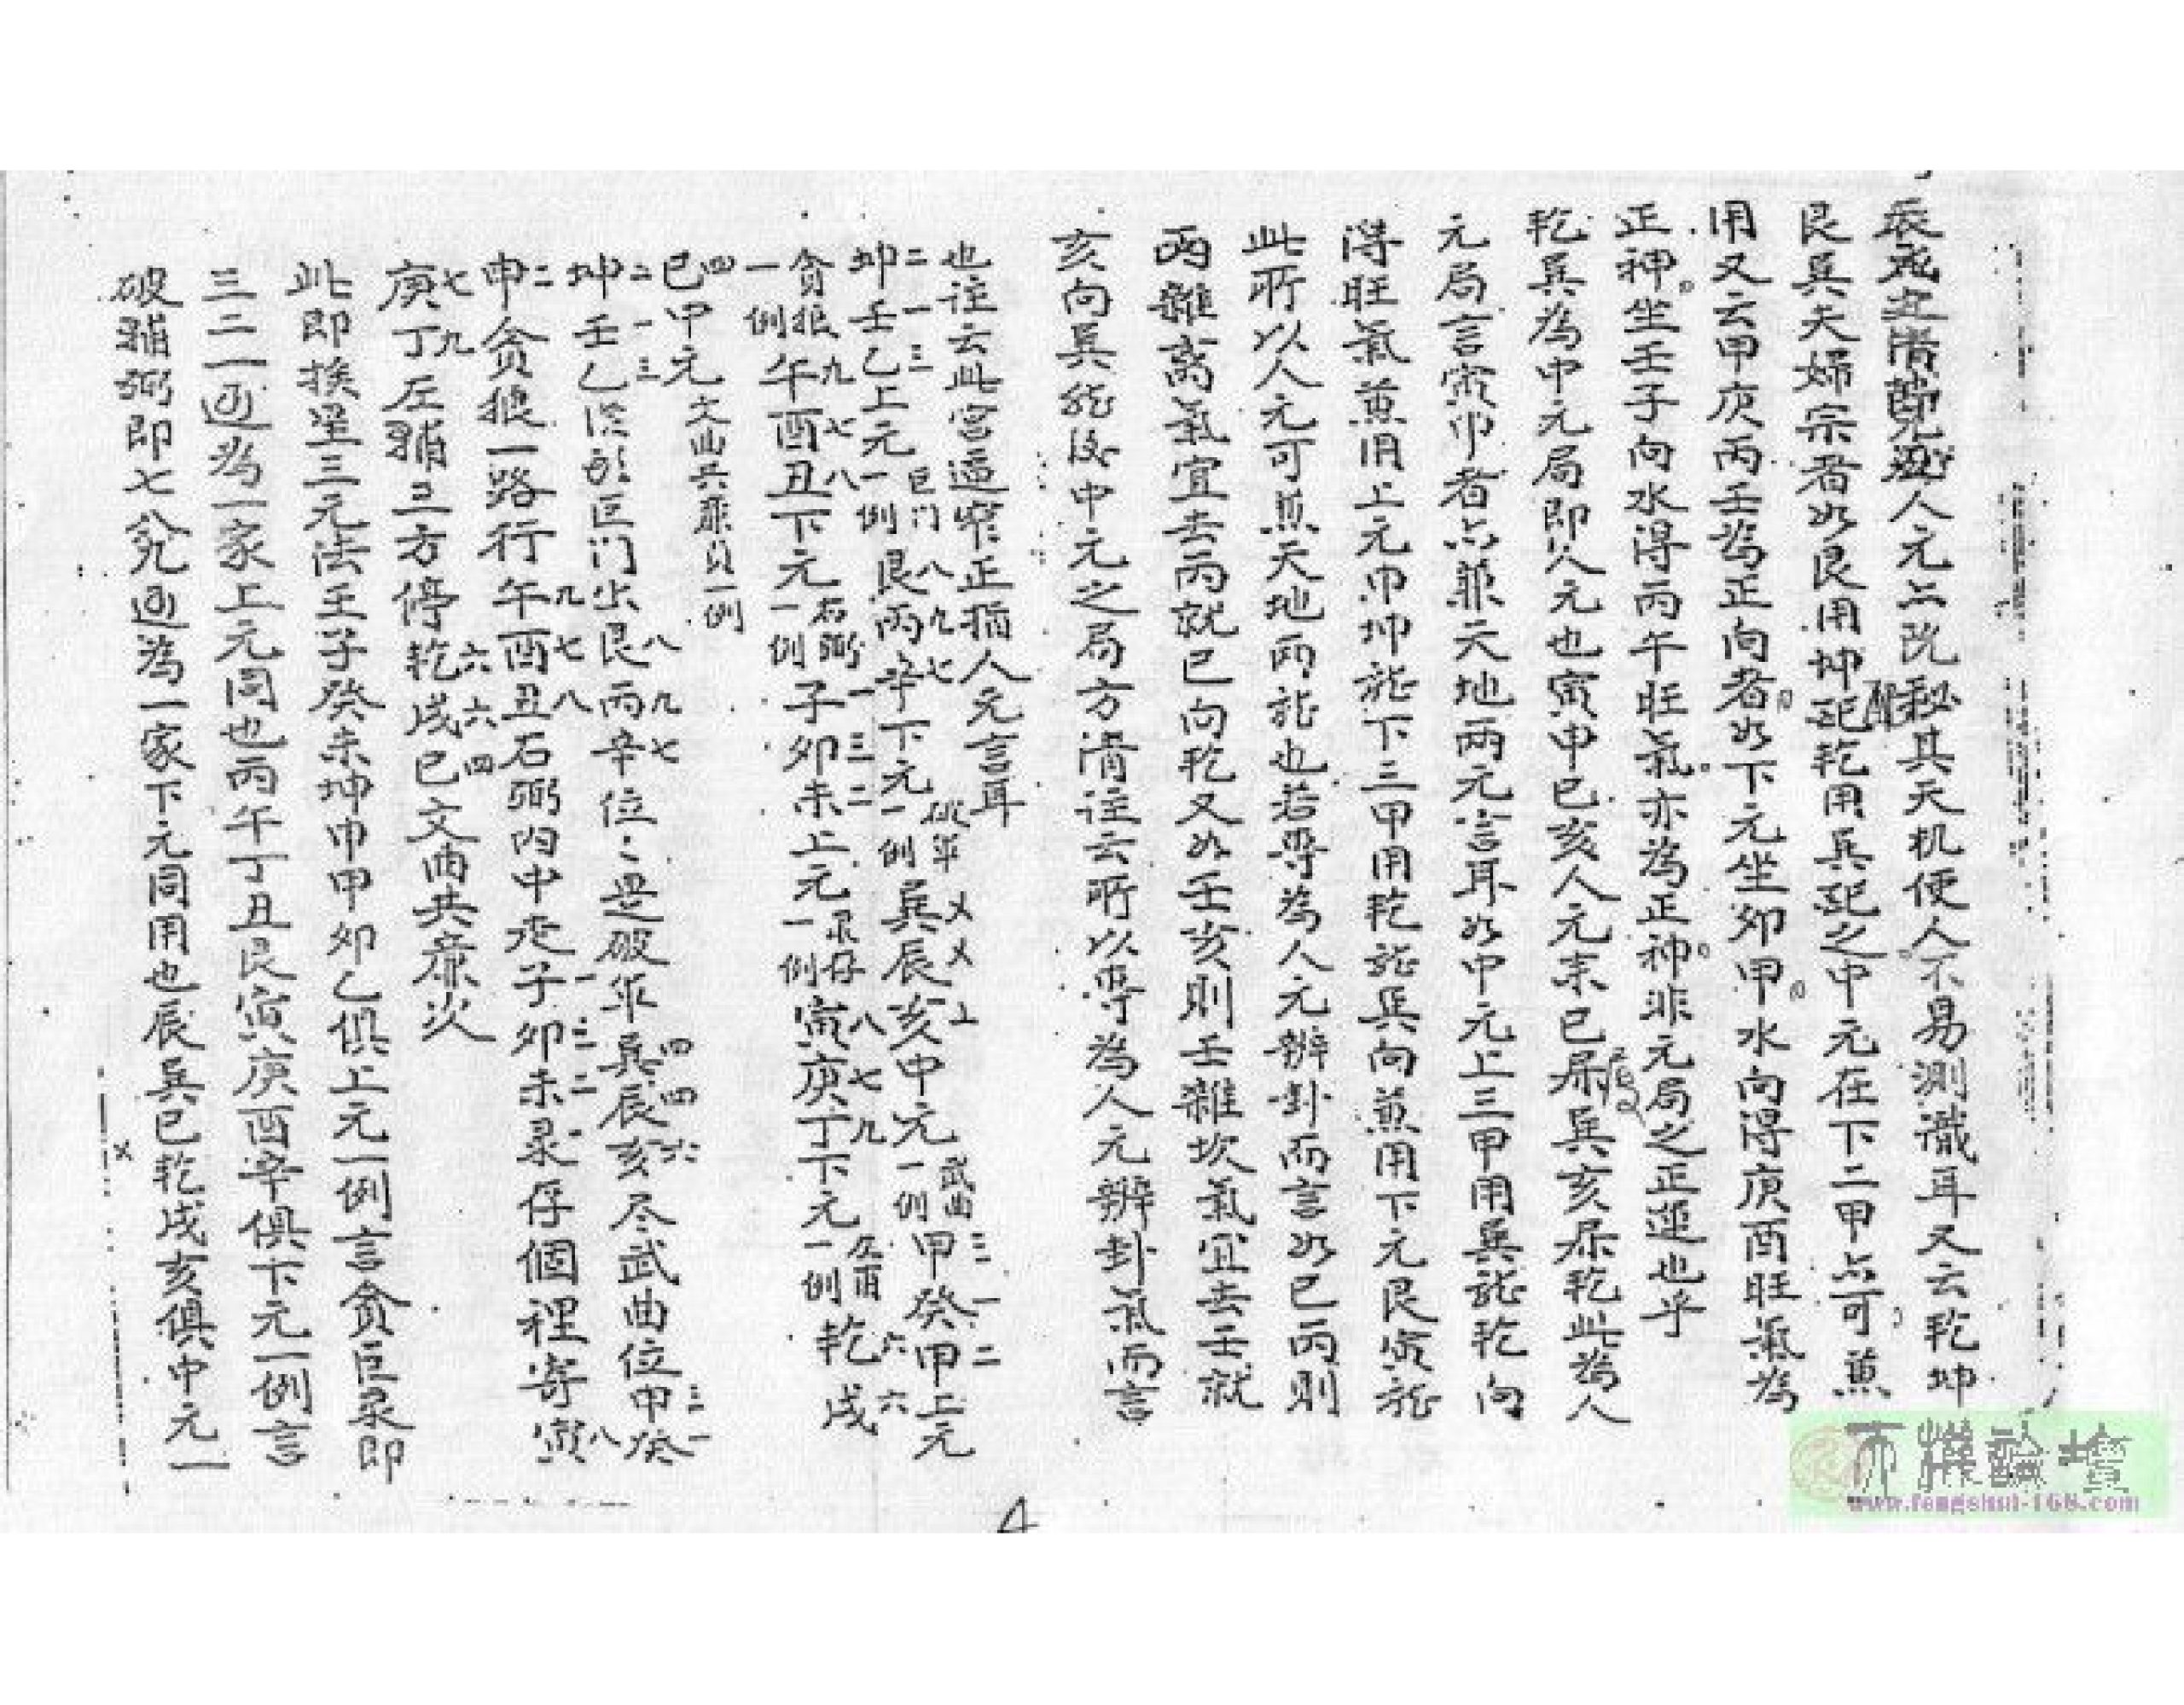 人元上既秘其天机使人不易測識耳又云乾坤
艮巽夫婦宗者如艮用坤配乾用巽配之中元在下二甲亦可兼
用又云甲庚丙壬為正向者如下元坐卯甲水向得庚酉旺氣為
正神坐壬子向水得丙午旺氣亦為正神非元局之正運也乎
乾巽為中元局即人元也寅申巳亥人元末巳屬巽亥屬乾此為人
元局言寅申者亦兼天地两元言耳如中元上三甲用巽龍乾向
得旺氣兼用上元申坤龍下三甲用乾龍巽向兼用下元艮寅龍
此所以人元可兼天地两龍也若專為人元辨卦而言如巳丙則
丙雜离氣宜去丙就巳向乾又如壬亥則壬雜坎氣宜去壬就
亥向巽龍後中元之局方清注云所以專為人元辨卦氣而言
也注云此宮逼窄正指人元言耳
坤二壬一乙三上元一例巨门艮八丙九辛七下元一例破軍巽〤辰〤亥〦中元一例武曲甲三癸一申二上元
貪狼一例午九酉七丑八下元一例右弼子一卯三未二上元一例录存寅八庚七丁九下元一例左甫乾六戌六
巳四中元文曲共廉貞一例
坤二壬一乙三從頭巨门出艮八丙九辛七位是破军巽四辰四亥六尽武曲位甲三癸一
申二貪狼一路行午九酉七丑八右弼内中走子一卯三未二录存個裡寄寅八
庚七丁九左輔三方停乾六戌六巳四文曲共廉火
此即挨星三元法壬子癸未坤申甲卯乙俱上元一例言貪巨录即
三二一通為一家上元同也丙午丁丑艮寅庚酉辛俱下元一例言
破輔弼即七八九通為一家下元同用也辰巽巳乾戌亥俱中元一
4
www.fengshui-168.com